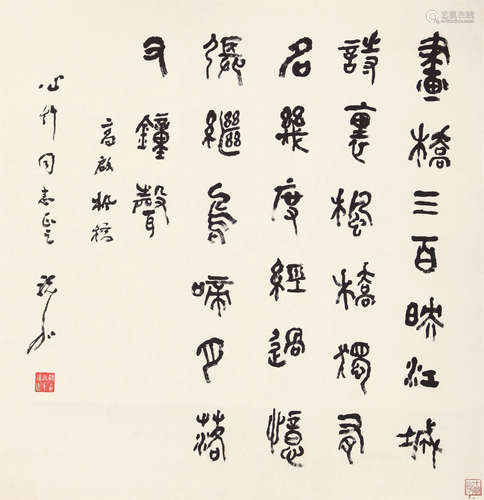 畫橋三百映江城
詩裏楓橋獨有
名幾度經過憶
張繼烏啼月落
又鐘聲
高啟楓橋
心竹同志正之